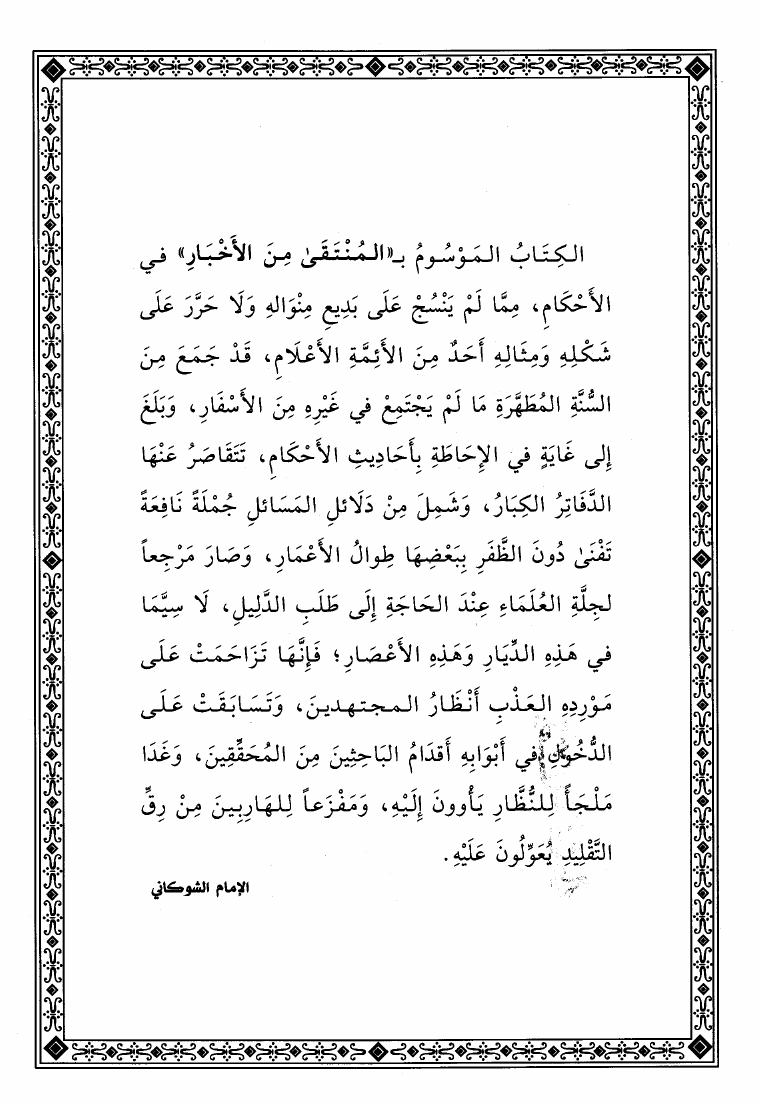 الكِتَابُ المَوْسُومُ بـ«المُنْتَقَىٰ مِنَ الأَخْبَارِ» في
الأَحْكَامِ، مِمَّا لَمْ يَنْسُجْ عَلَى بَدِيعِ مِنْوَالِهِ وَلَا حَرَّرَ عَلَى
شَكْلِهِ وَمِثَالِهِ أَحَدٌ مِنَ الأَئِمَّةِ الأَعْلَامِ، قَدْ جَمَعَ مِنَ
السُّنَّةِ المُطَهَّرَةِ مَا لَمْ يَجْتَمِعْ في غَيْرِهِ مِنَ الأَسْفَارِ، وَبَلَغَ
إِلى غَايَةٍ في الإِحَاطَةِ بِأَحَادِيثِ الأَحْكَامِ، تَتَقَاصَرُ عَنْهَا
الدَّفَاتِرُ الكِبَارُ، وَشَمِلَ مِنْ دَلَائلِ المَسَائلِ جُمْلَةً نَافِعَةً
تَفْنَىٰ دُونَ الظَّفَرِ بِبَعْضِهَا طِوالُ الأَعْمَارِ، وَصَارَ مَرْجِعاً
لجِلَّةِ العُلَمَاءِ عِنْدَ الحَاجَةِ إِلَى طَلَبِ الدَّلِيلِ، لَا سِيَّمَا
في هَذِهِ الدِّيَارِ وَهَذِهِ الأَعْصَارِ؛ فَإِنَّهَا تَزَاحَمَتْ عَلَى
مَوْرِدِهِ العَذْبِ أَنْظَارُ المجتهدينَ، وَتَسَابَقَتْ عَلَى
الدُّخُولِ في أَبْوَابِهِ أَقدَامُ البَاحِثِينَ مِنَ المُحَقِّقِينَ، وَغَدَا
مَلْجَأً لِلنُّظَّارِ يَأْوونَ إِلَيْهِ، وَمَفْزَعاً لِلهَارِبِينَ مِنْ رِقِّ
التَّقْلِيدِ يُعَوِّلُونَ عَلَيْهِ.
الإمام الشوكاني